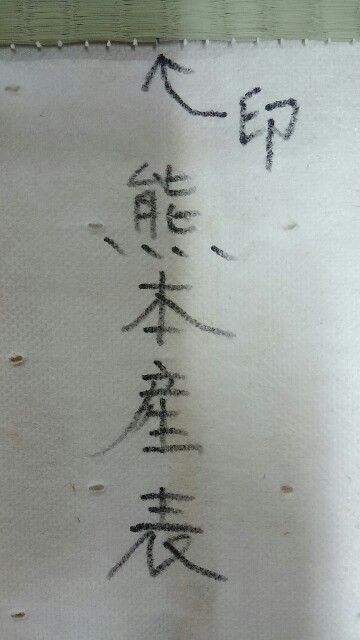 印
熊本産表